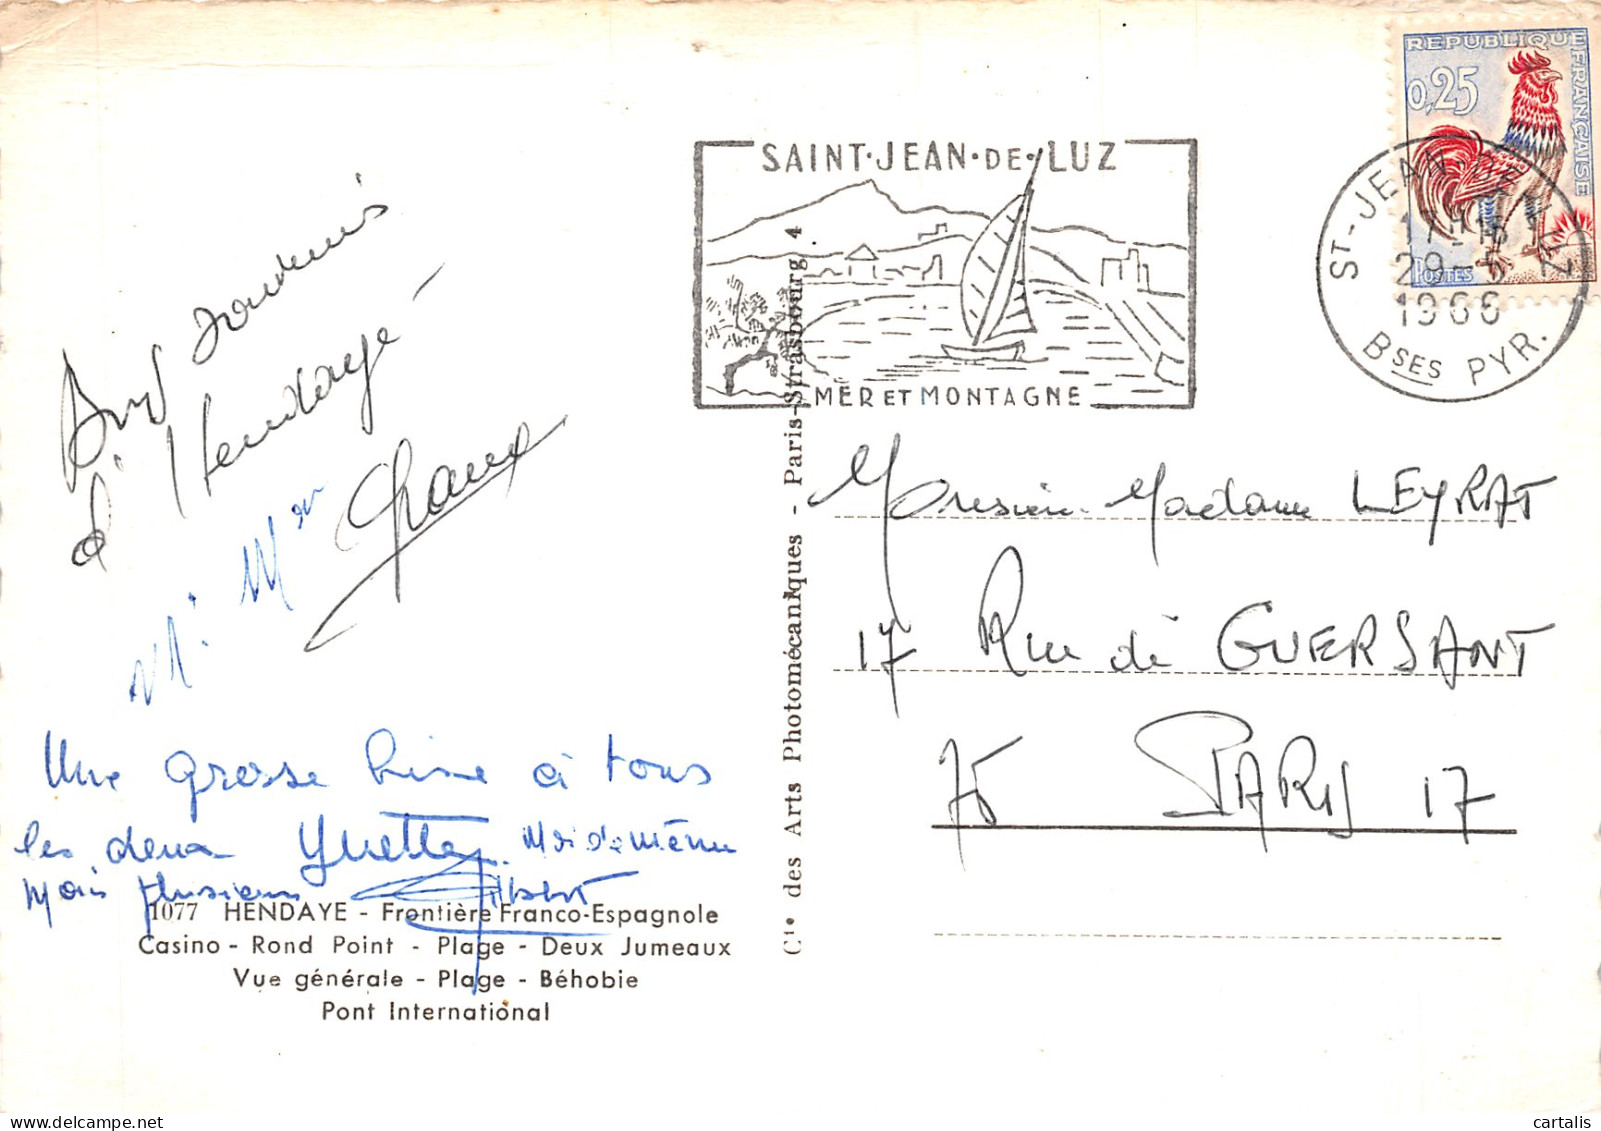 REPUBLIQUE FRANÇAISE
0,25
POSTES
SAINT·JEAN·DE·LUZ
MER ET MONTAGNE
ST-JEAN-DE-LUZ
29-5
1966
BSES PYR.
d'Hendaye
Mr. Mme
Une grosse bise à tous
les deux Yvette. Moi de même
Mais plusieurs Gilbert
1077 HENDAYE - Frontière Franco-Espagnole
Casino - Rond Point - Plage - Deux Jumeaux
Vue générale - Plage - Béhobie
Pont International
Cie des Arts Photomécaniques - Paris-Strasbourg. 4
Monsieur Madame LEYRAT
17 Rue de GUERSANT
75 PARIS 17
cartalis